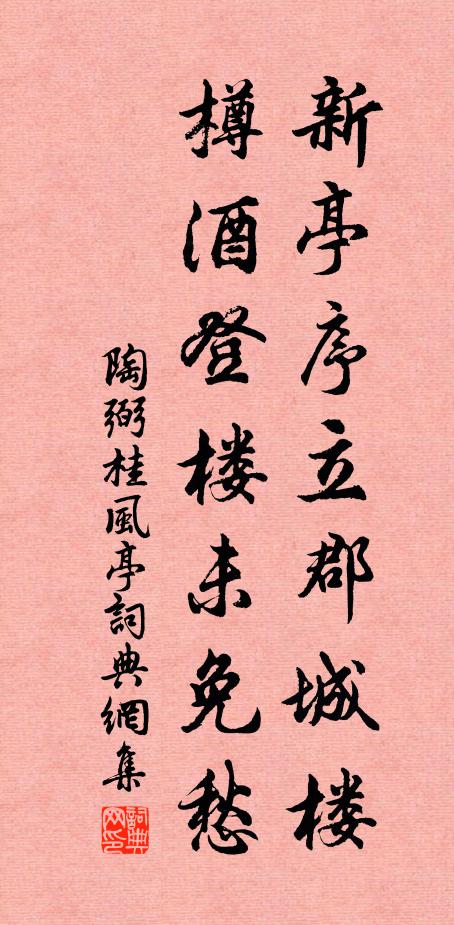 新亭序立郡城楼
樽酒登楼未免愁
陶弼桂風亭詞典網集
詞典网印